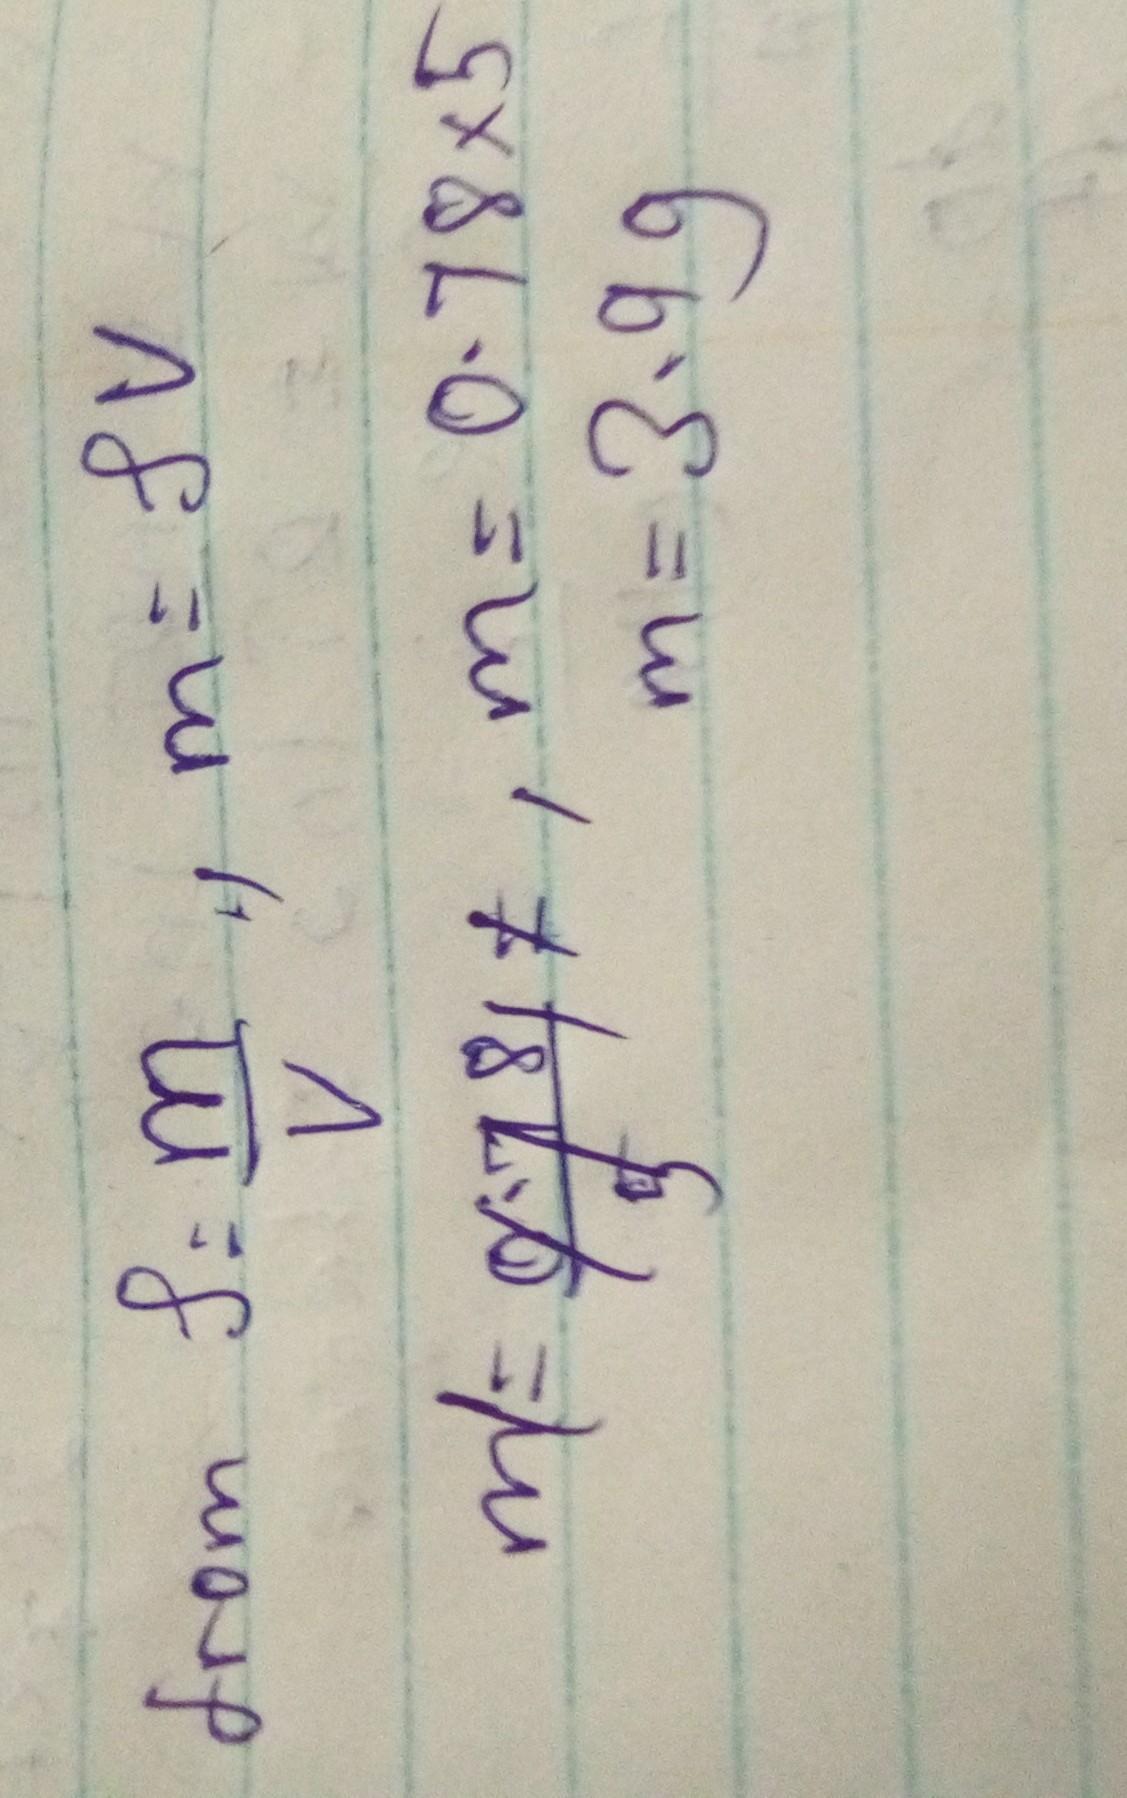 from ρ = m/V , m = ρV
m = 0.78/5 , m = 0.78 × 5
m = 3.9g